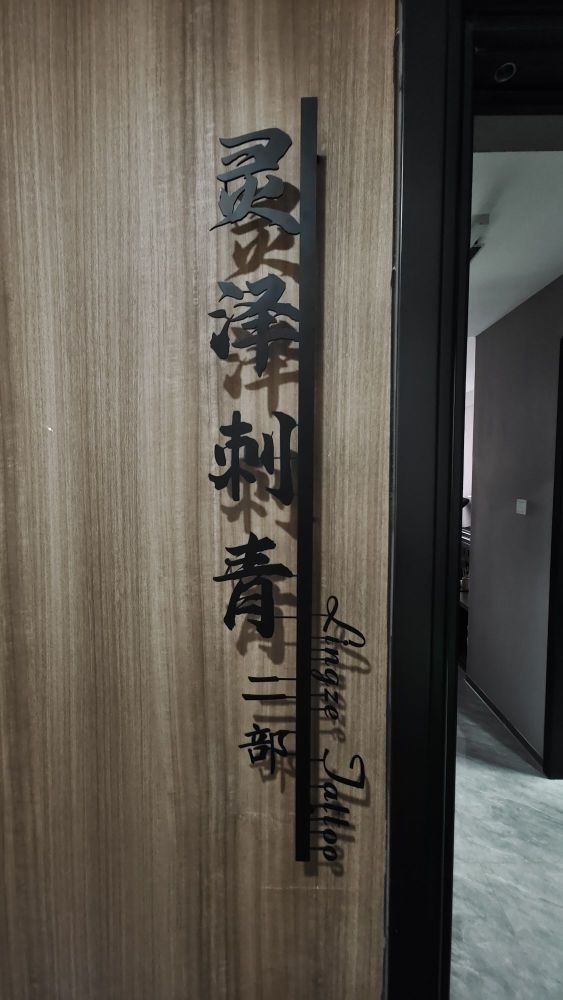 灵泽刺青二部
Lingze Tattoo